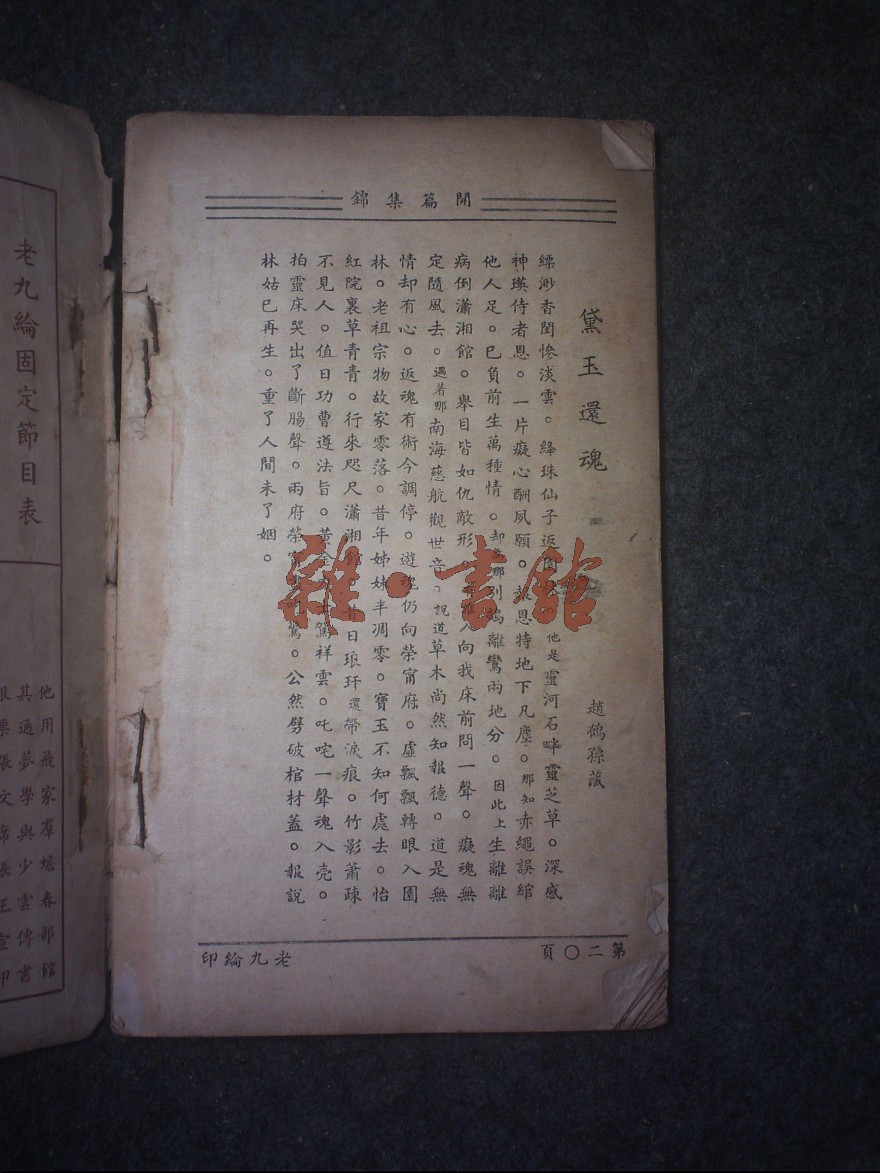 開篇集錦
黛玉還魂
趙鶴蓀
縹渺香閨慘淡雲。絳珠仙子返 他是靈河石畔靈芝草。深感
神瑛侍者恩。一片癡心酬夙願。報恩特地下凡塵。那知赤繩誤綰
他人足。已負前生萬種情。却 那別鵠離鸞兩地分。因此上生離離
病倒瀟湘館。舉目皆如仇敵形。 人向我床前問一聲。癡魂無
定隨風去。遇着那南海慈航觀世音。說道草木尚然知報德。道是無
情却有心。返魂有術今調停。遊魂仍向榮甯府。虛飄飄轉眼入園
林。老祖宗物故家零落。昔年姊妹半凋零。寶玉不知何處去。怡
紅院裏草青青。行來咫尺瀟湘館。昔日琅玕還帶淚痕。竹影蕭疎
不見人。值日功曹遵法旨。黃金 駕祥雲。叱咤一聲魂入壳。
拍靈床哭出了斷腸聲。兩府榮 驚。公然劈破棺材蓋。報說
林姑已再生。重了人間未了姻。
第二〇頁
老九綸印
雜·書館
老九綸固定節目表
他用飛家羣蟾春部館
其通夢學與少雲傳書